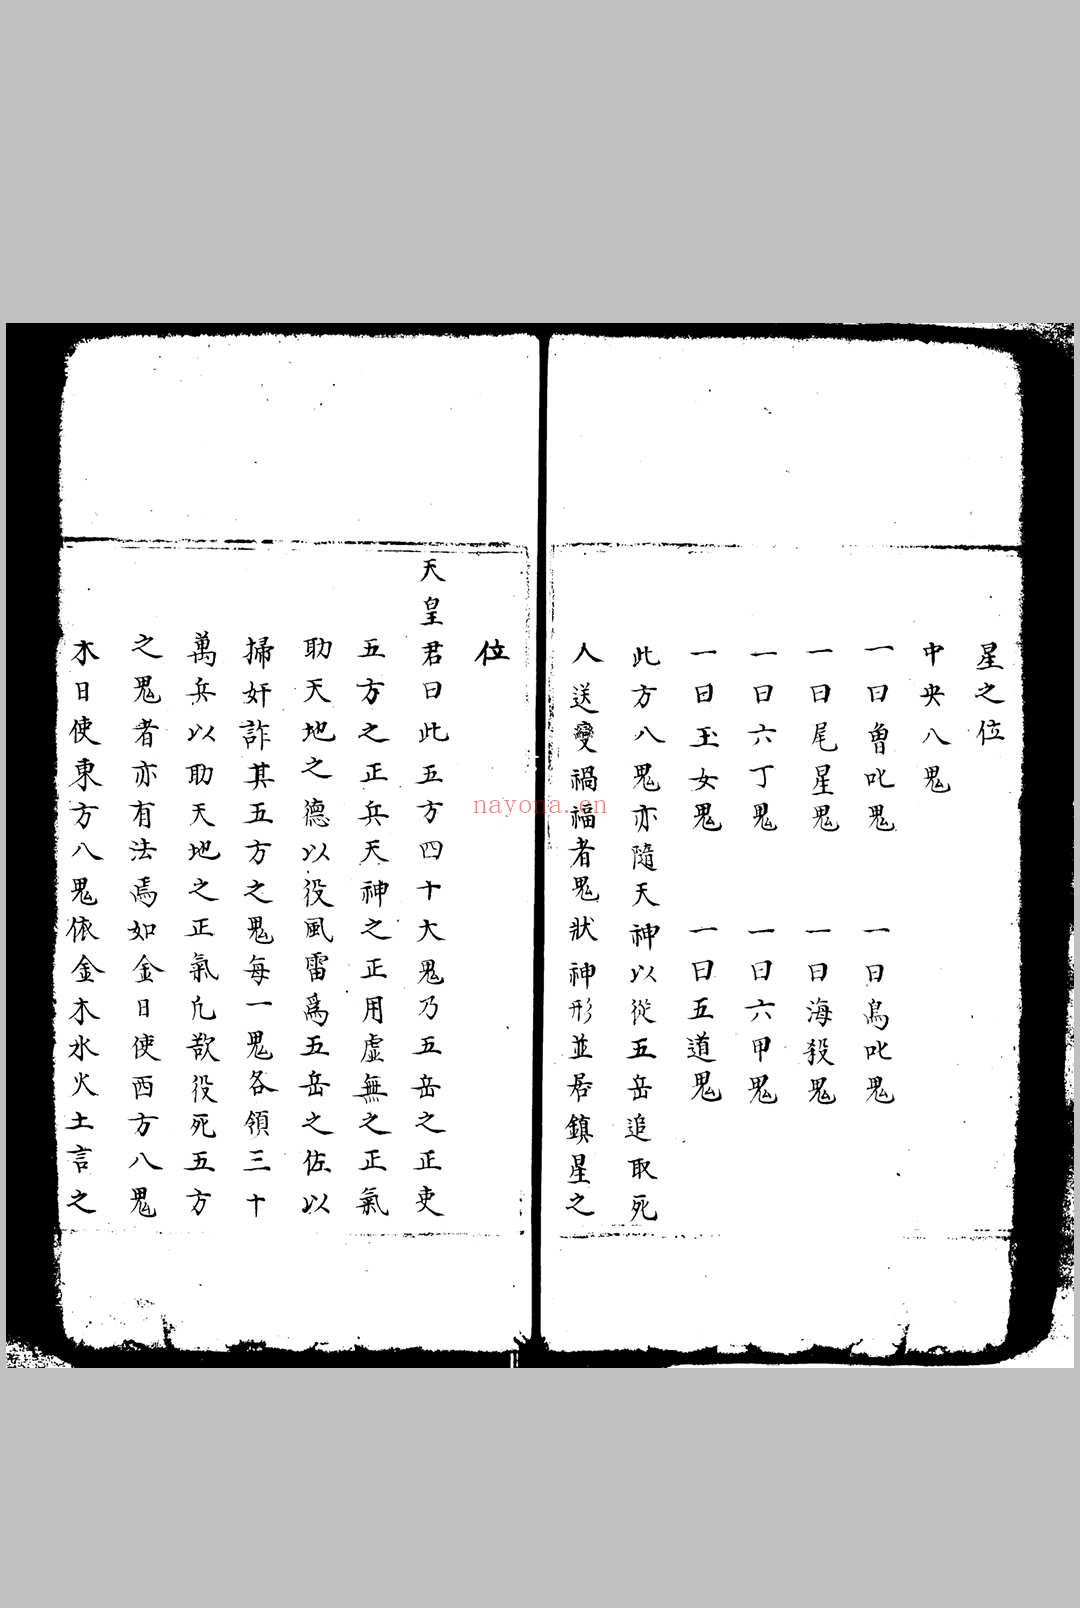 星之位
中央八鬼
一曰魯叱鬼 一曰鳥叱鬼
一曰尾星鬼 一曰海殺鬼
一曰六丁鬼 一曰六甲鬼
一曰玉女鬼 一曰五道鬼
此方八鬼亦隨天神以從五岳追取死
人送變禍福者鬼狀神形並居鎮星之
位
天皇君曰此五方四十大鬼乃五岳之正吏
五方之正兵天神之正用虛無之正氣
助天地之德以役風雷爲五岳之佐以
掃奸詐其五方之鬼每一鬼各領三十
萬兵以助天地之正氣凡欲役死五方
之鬼者亦有法焉如金日使西方八鬼
木日使東方八鬼依金木水火土言之
nayona.cn